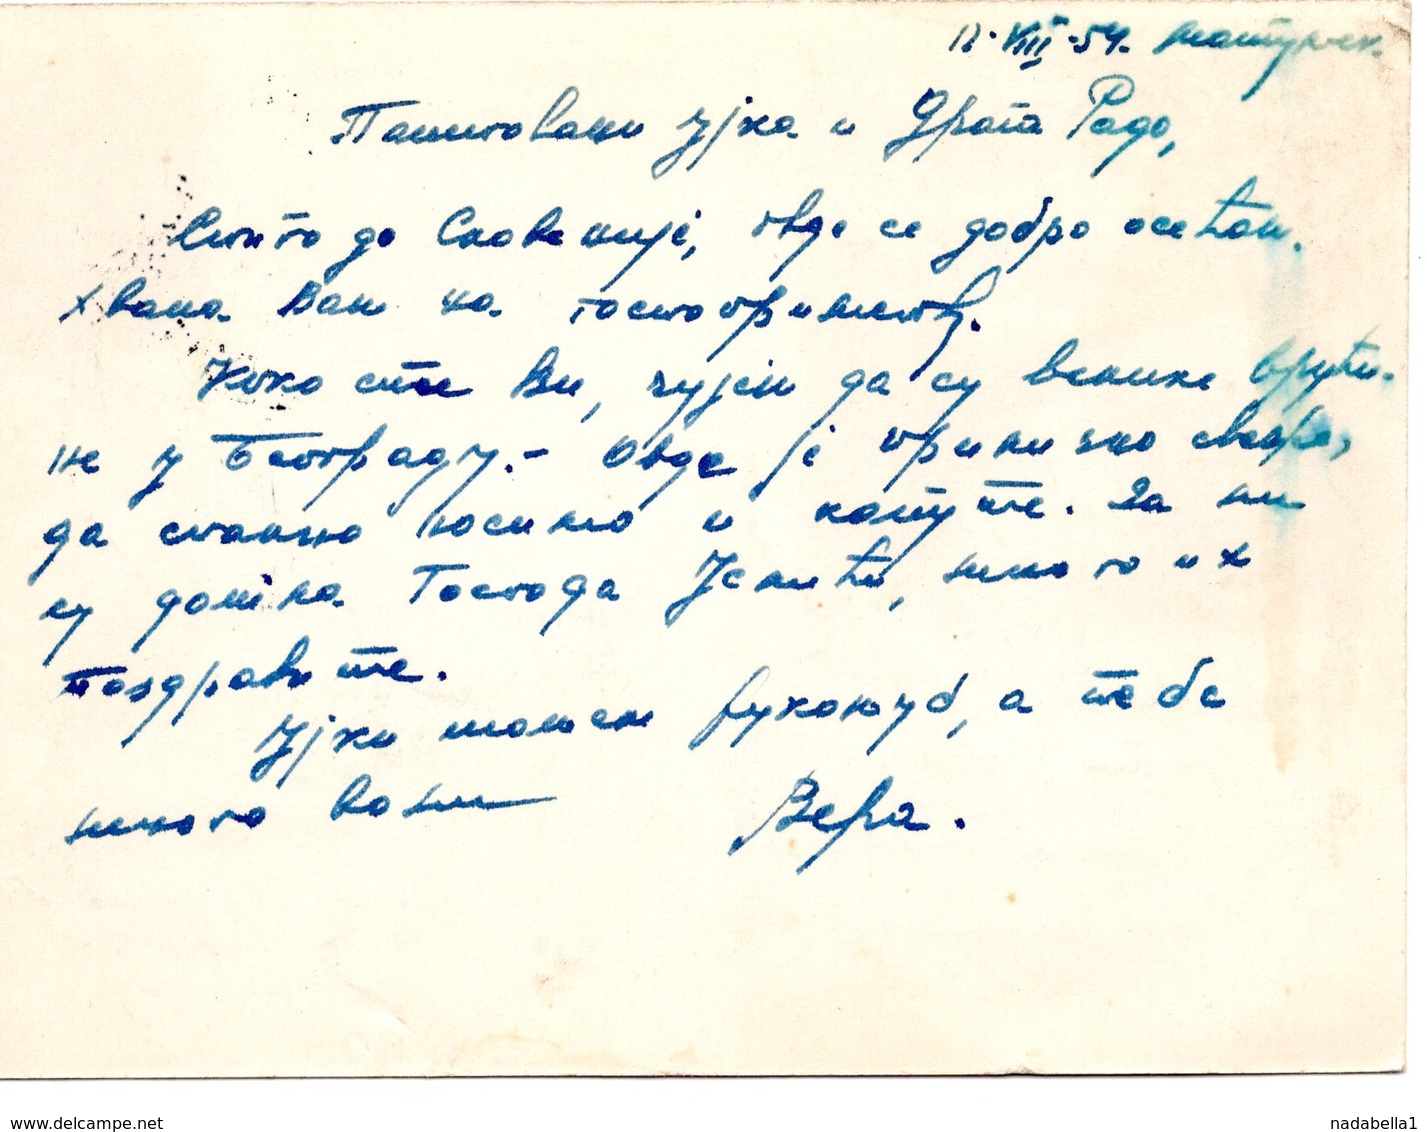 12. VIII. 54.
Поштовани Ујка и Драга Радо,
до Словеније, овде се добро осећам.
Хвала Вам на гостопримству.
Како сте Ви, чујем да су велике врући-
не у Београду. - Овде је прилично свеже,
да стално носимо и капуте. Да ли
су дошла Господа, много их
поздравите.
Ујки шаљем рукољуб, а тебе
много воли Вера.
www.delcampe.net
nadabella1